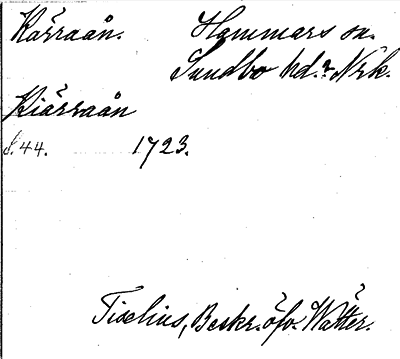 Kärraån. Hammars sn.
Sundbo hd. Nrk.
Kiärraån
s. 44. 1723.
Tiselius, Beskr. öfv. Wätter.